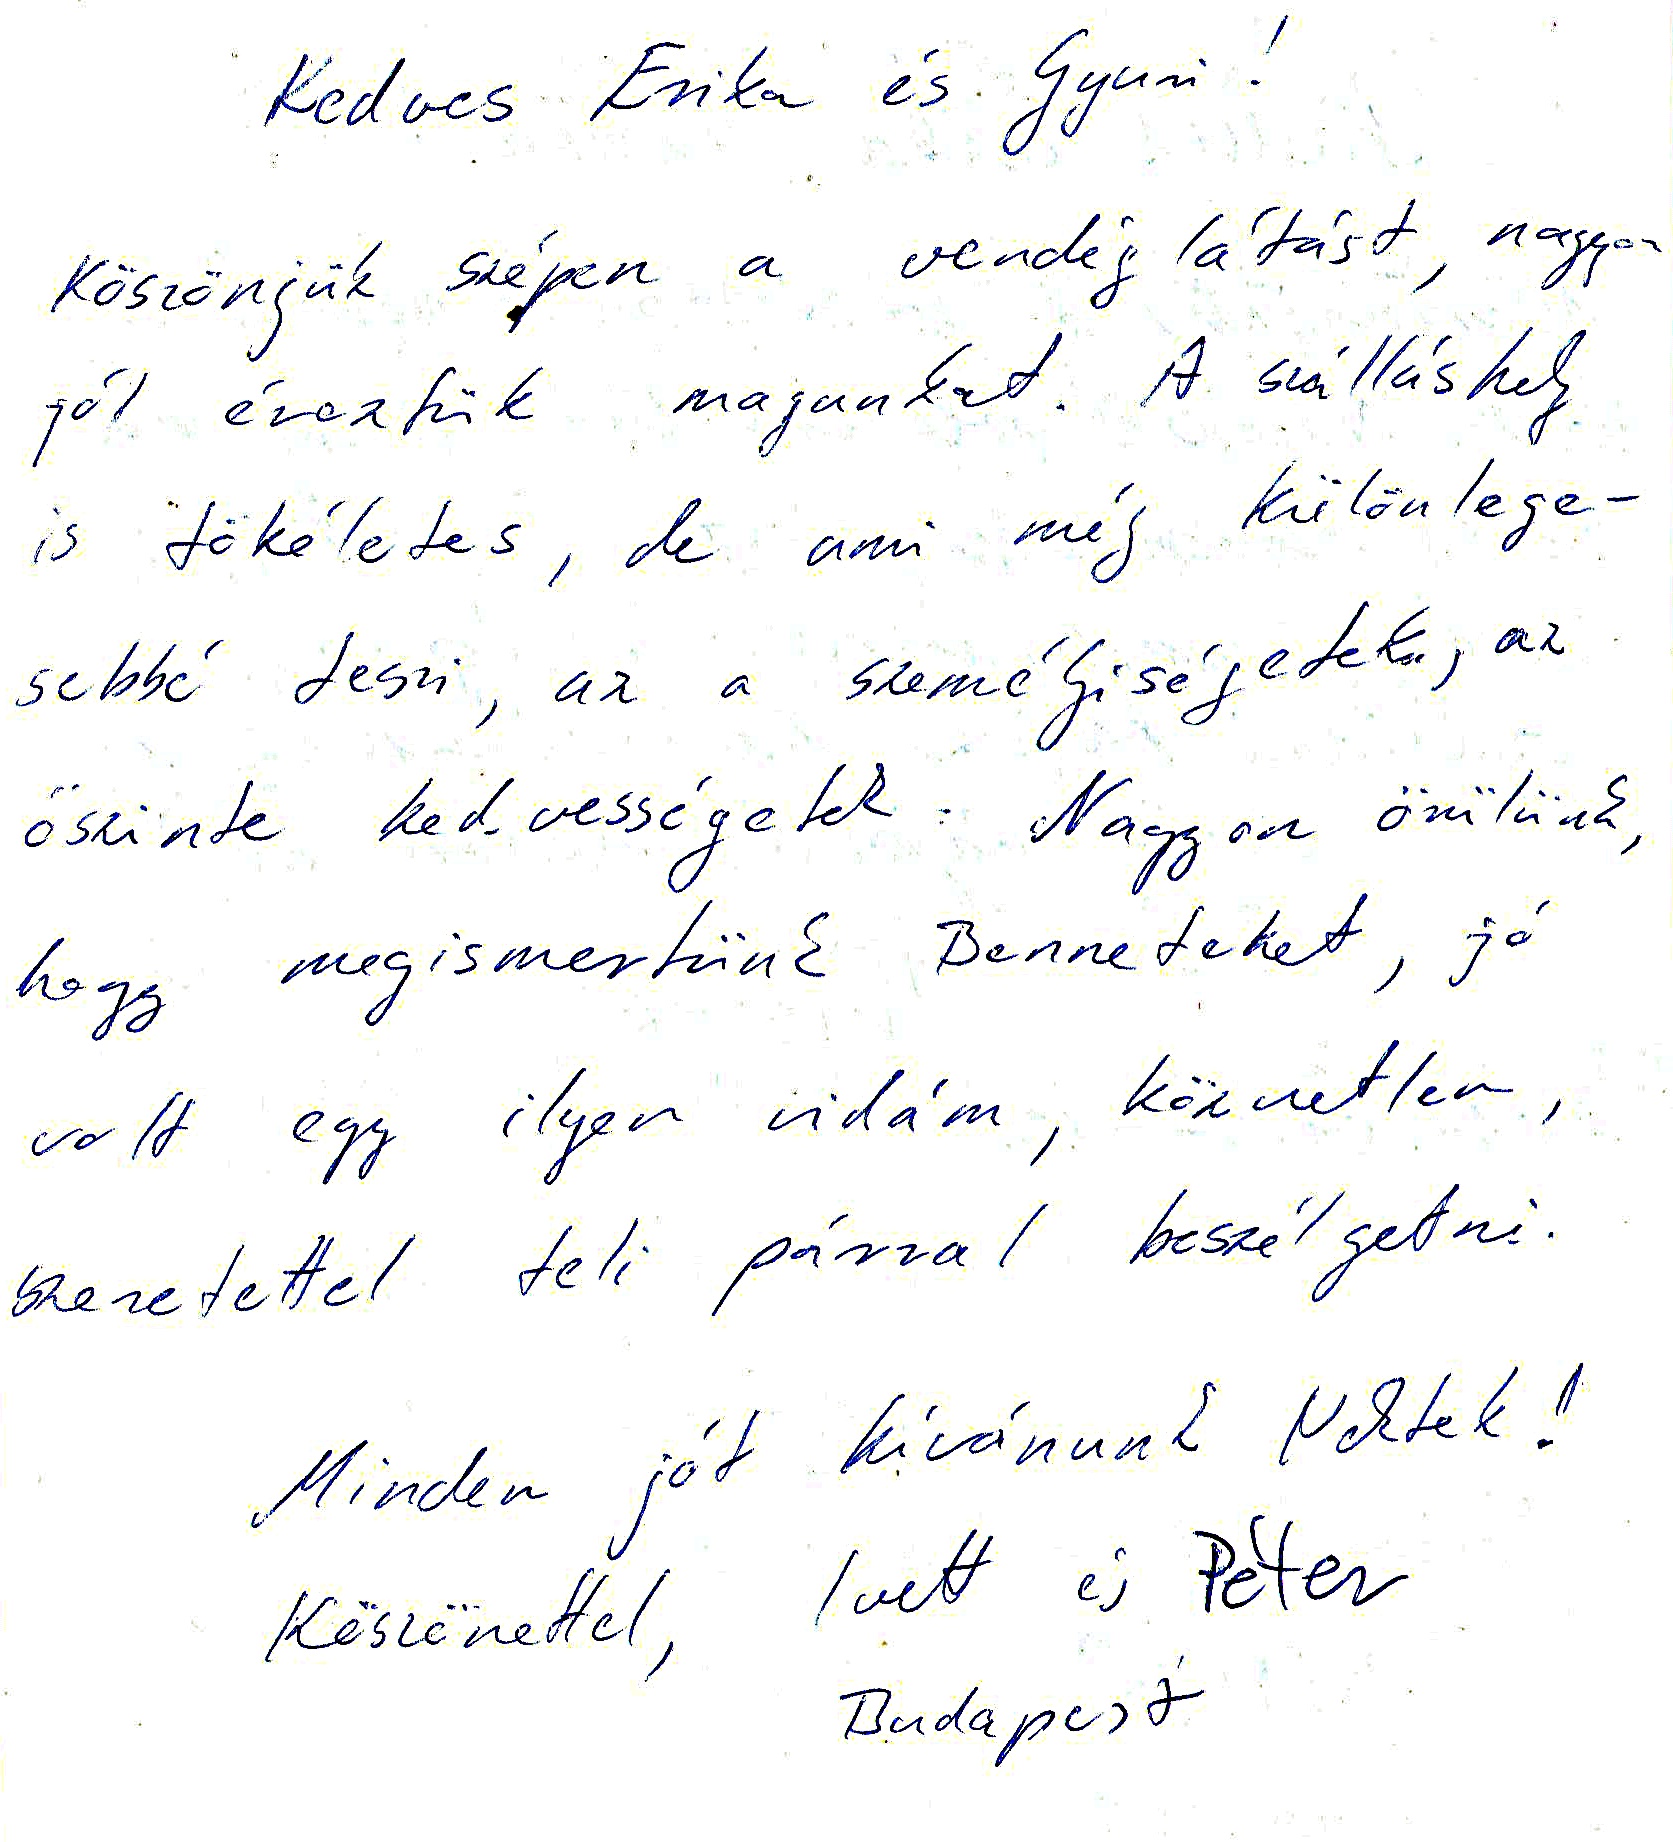 Kedves Erika és Gyuri!
Köszönjük szépen a vendéglátást, nagyon
jól éreztük magunkat. A szálláshely
is tökéletes, de ami még különlege-
sebbé teszi, az a személyiségetek, az
őszinte kedvességetek. Nagyon örülünk,
hogy megismertünk Benneteket, jó
volt egy ilyen vidám, közvetlen,
szeretettel teli párral beszélgetni.
Minden jót kívánunk Nektek!
Köszönettel, Ivett és Péter
Budapest